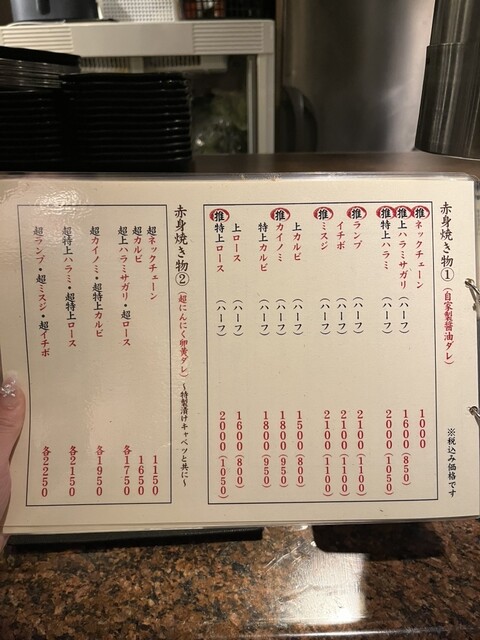 赤身焼き物①（自家製醤油ダレ）
※税込み価格です
推 ネックチェーン 1000
推 上ハラミサガリ（ハーフ） 1600（850）
推 特上ハラミ（ハーフ） 2000（1050）
推 ランプ（ハーフ） 2100（1100）
イチボ（ハーフ） 2100（1100）
推 ミスジ（ハーフ） 2100（1100）
上カルビ（ハーフ） 1500（800）
推 カイノミ（ハーフ） 1800（950）
特上カルビ（ハーフ） 1800（950）
上ロース（ハーフ） 1600（800）
推 特上ロース（ハーフ） 2000（1050）
赤身焼き物②（超にんにく卵黄ダレ）～特製漬けキャベツと共に～
超ネックチェーン 1150
超カルビ 1650
超上ハラミサガリ・超ロース 各1750
超カイノミ・超特上カルビ 各1950
超特上ハラミ・超特上ロース 各2150
超ランプ・超ミスジ・超イチボ 各2250